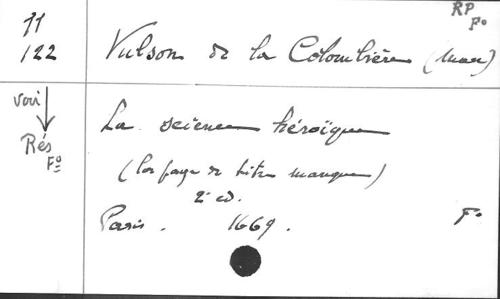 RP
Fo
11
122
Vulson de la Colombière (Marc)
voir
Rés
Fo
La science héroïque
(la page de titre manque)
2e ed.
Paris. 1669. Fo